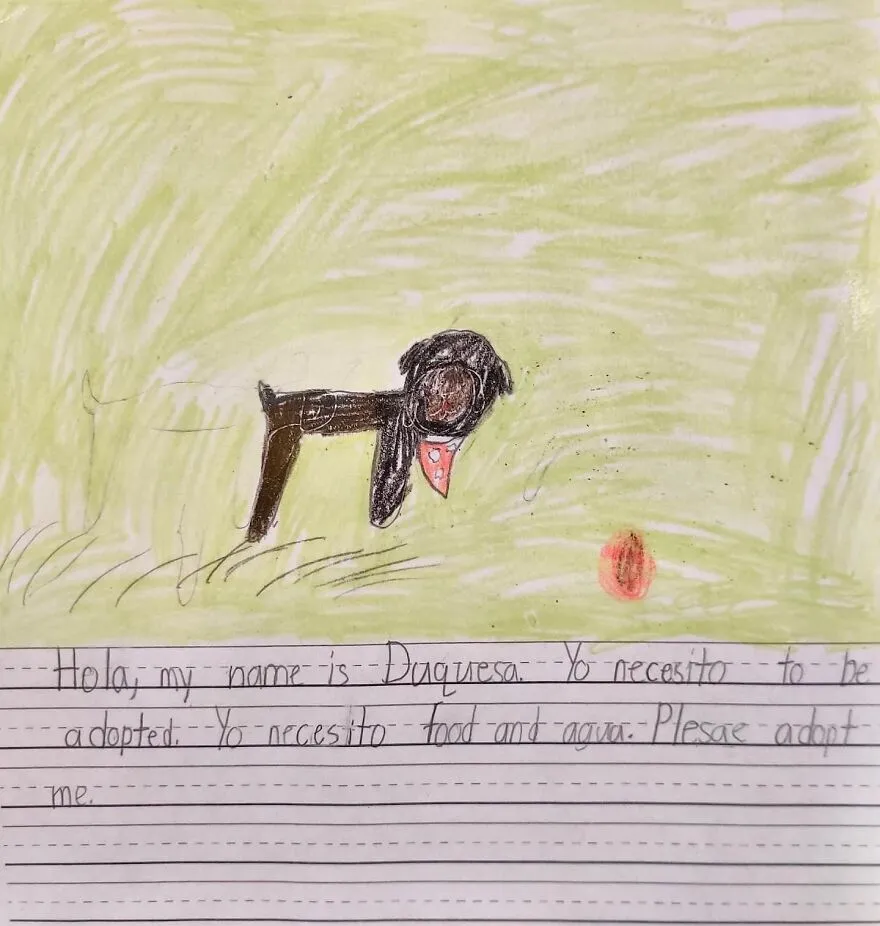 Hola, my name is Duquesa. Yo necesito to be
adopted. Yo necesito food and agua. Plesae adopt
me.